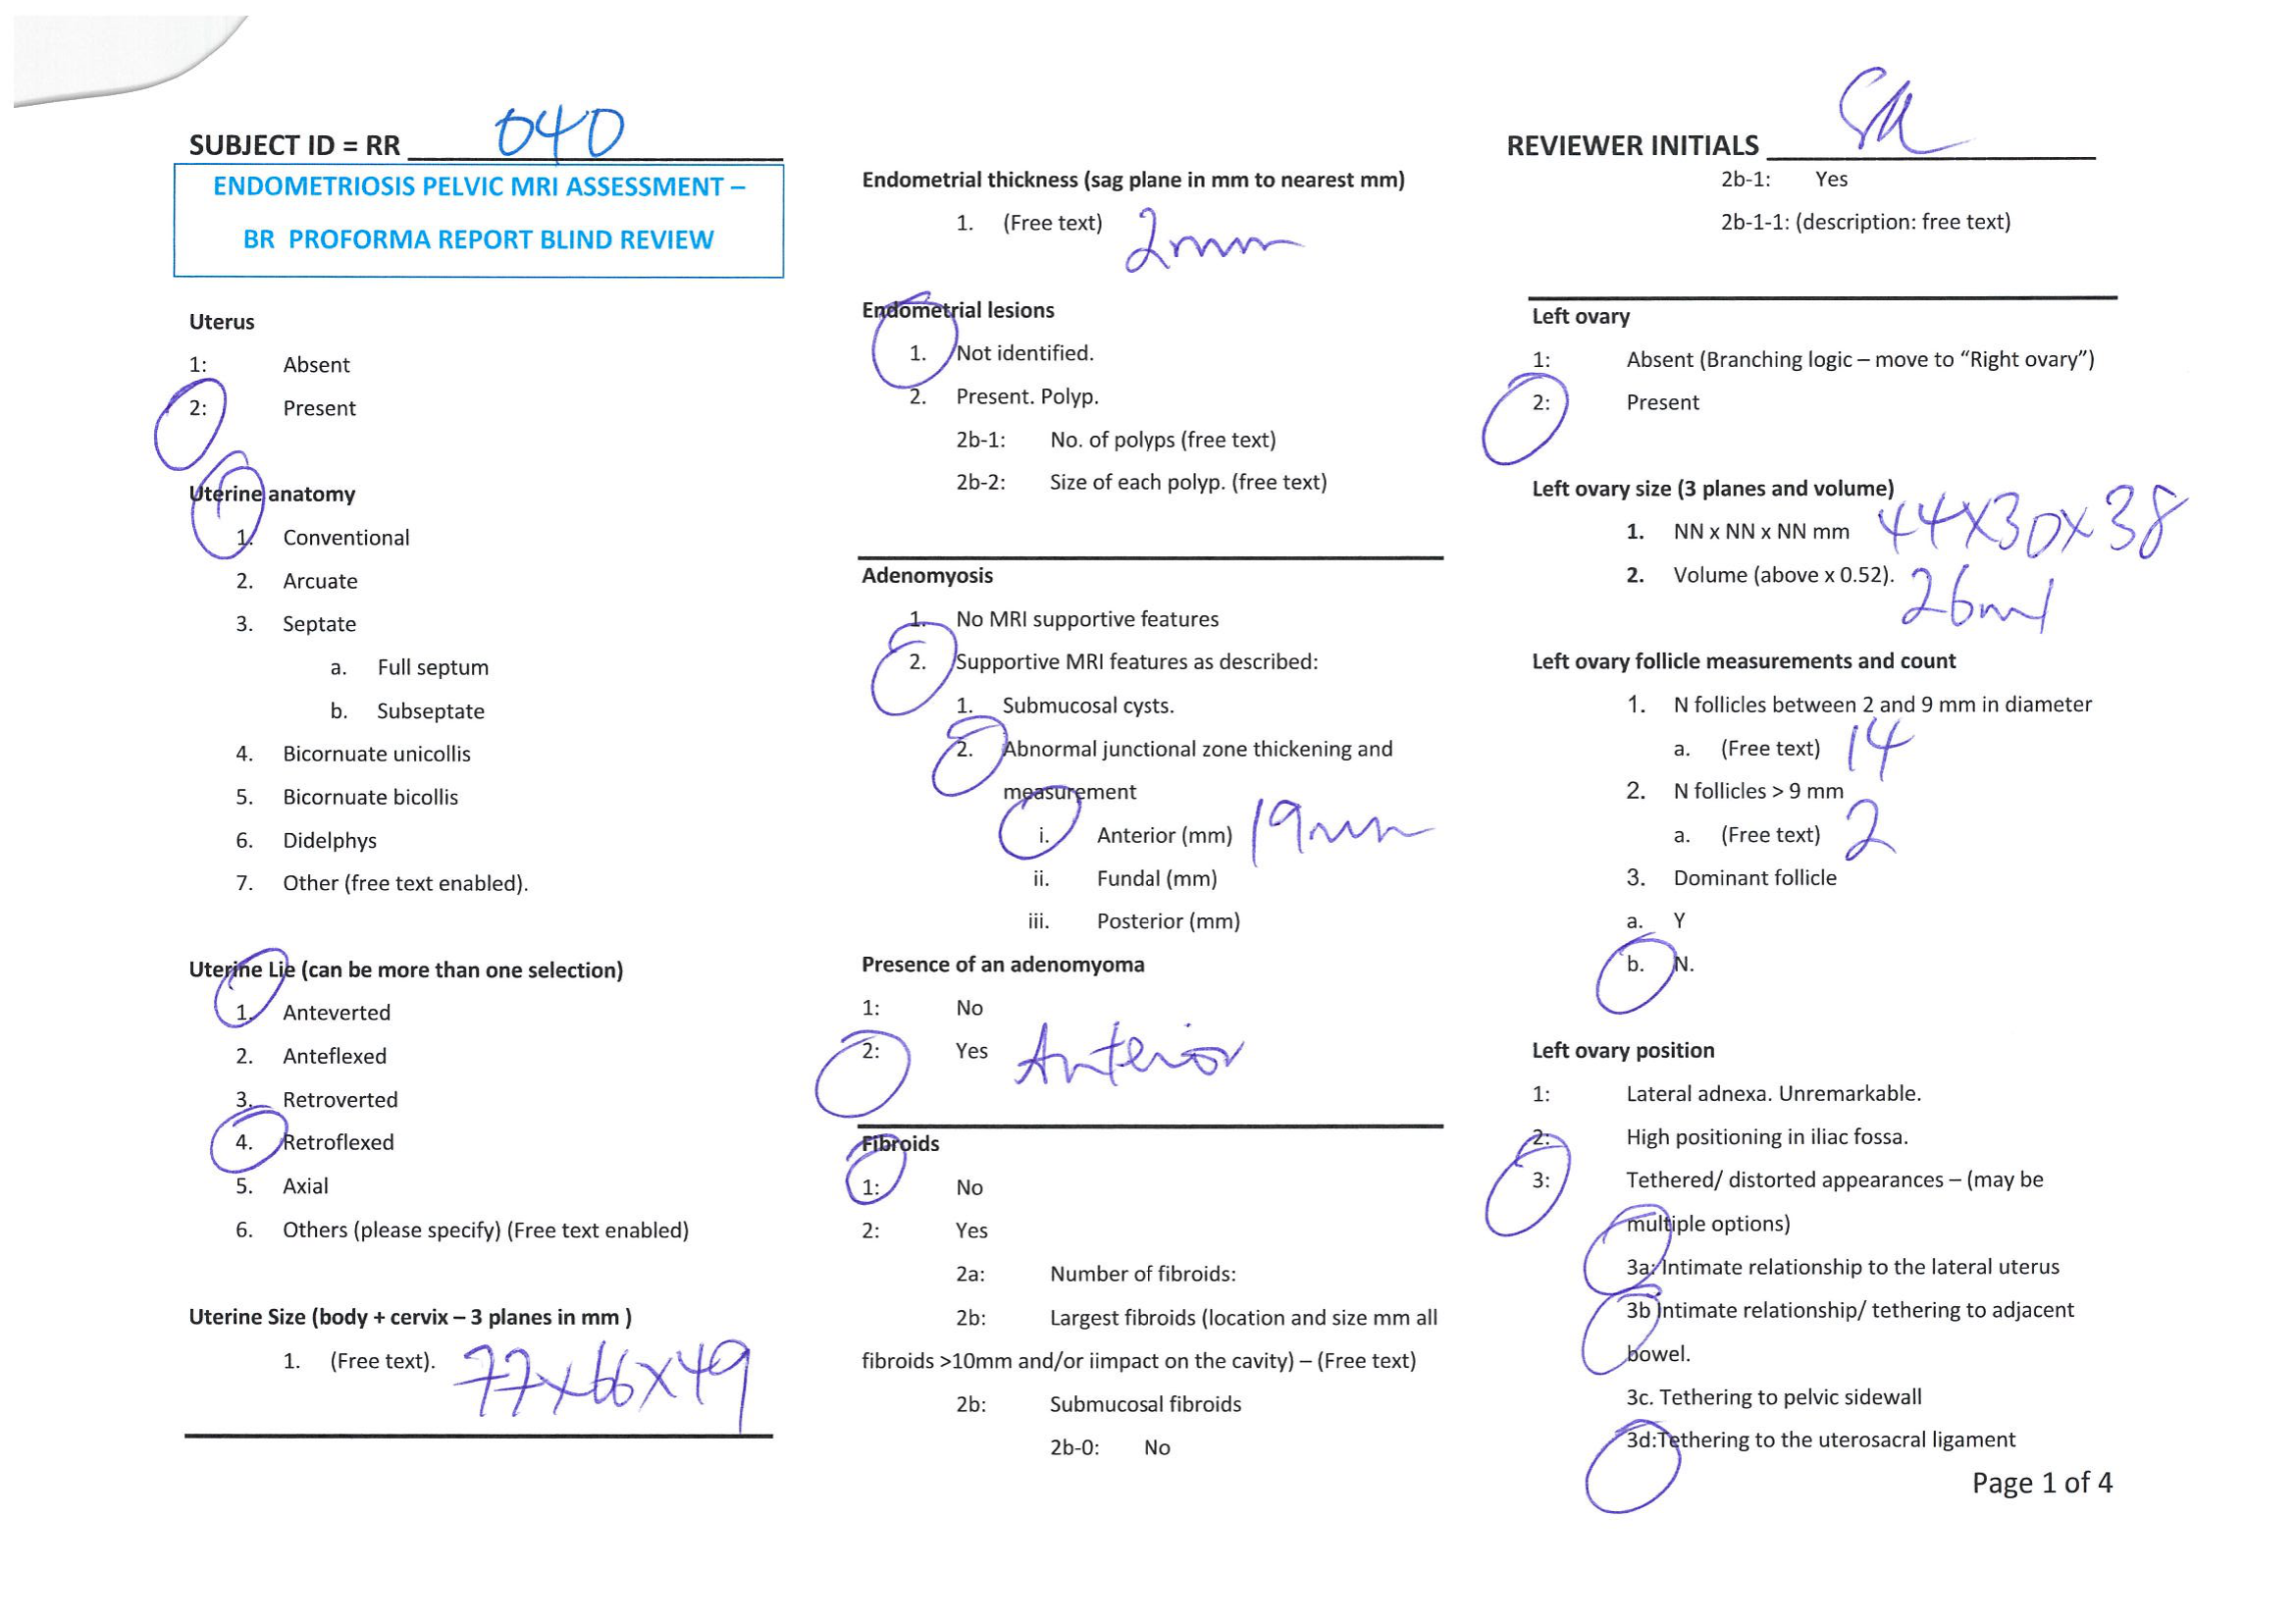 SUBJECT ID = RR 040
ENDOMETRIOSIS PELVIC MRI ASSESSMENT –
BR PROFORMA REPORT BLIND REVIEW
Uterus
1: Absent
2: Present
Uterine anatomy
1. Conventional
2. Arcuate
3. Septate
a. Full septum
b. Subseptate
4. Bicornuate unicollis
5. Bicornuate bicollis
6. Didelphys
7. Other (free text enabled).
Uterine Lie (can be more than one selection)
1. Anteverted
2. Anteflexed
3. Retroverted
4. Retroflexed
5. Axial
6. Others (please specify) (Free text enabled)
Uterine Size (body + cervix – 3 planes in mm )
1. (Free text). 77x66x49
Endometrial thickness (sag plane in mm to nearest mm)
1. (Free text) 2mm
Endometrial lesions
1. Not identified.
2. Present. Polyp.
2b-1: No. of polyps (free text)
2b-2: Size of each polyp. (free text)
Adenomyosis
1. No MRI supportive features
2. Supportive MRI features as described:
1. Submucosal cysts.
2. Abnormal junctional zone thickening and
measurement
i. Anterior (mm) 19mm
ii. Fundal (mm)
iii. Posterior (mm)
Presence of an adenomyoma
1: No
2: Yes Anterior
Fibroids
1: No
2: Yes
2a: Number of fibroids:
2b: Largest fibroids (location and size mm all
fibroids >10mm and/or iimpact on the cavity) – (Free text)
2b: Submucosal fibroids
2b-0: No
REVIEWER INITIALS
2b-1: Yes
2b-1-1: (description: free text)
Left ovary
1: Absent (Branching logic – move to “Right ovary”)
2: Present
Left ovary size (3 planes and volume)
1. NN x NN x NN mm 44x30x38
2. Volume (above x 0.52). 26ml
Left ovary follicle measurements and count
1. N follicles between 2 and 9 mm in diameter
a. (Free text) 14
2. N follicles > 9 mm
a. (Free text) 2
3. Dominant follicle
a. Y
b. N.
Left ovary position
1: Lateral adnexa. Unremarkable.
2: High positioning in iliac fossa.
3: Tethered/ distorted appearances – (may be
multiple options)
3a: Intimate relationship to the lateral uterus
3b Intimate relationship/ tethering to adjacent
bowel.
3c. Tethering to pelvic sidewall
3d:Tethering to the uterosacral ligament
Page 1 of 4